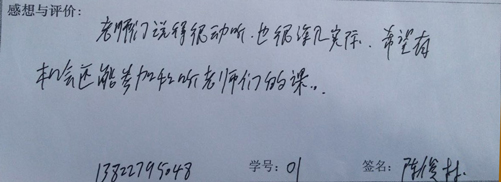 感想与评价:
老师们说得很动听.也很深入实际.希望有
机会还能参加和听老师们的课...
13822795048 学号: 01 签名: 陈俊林